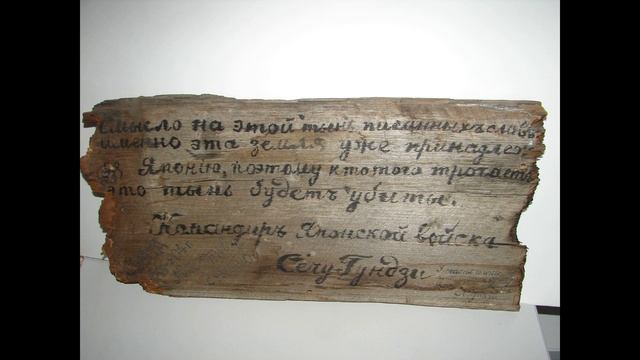 Смысло на этой тынь писанныхъ словъ
именно эта земля уже принадлеж
Японію, поэтому кто того трогаетъ
это тынь будетъ убиты.
Командиръ Японской войска
Сечу-Гундзи